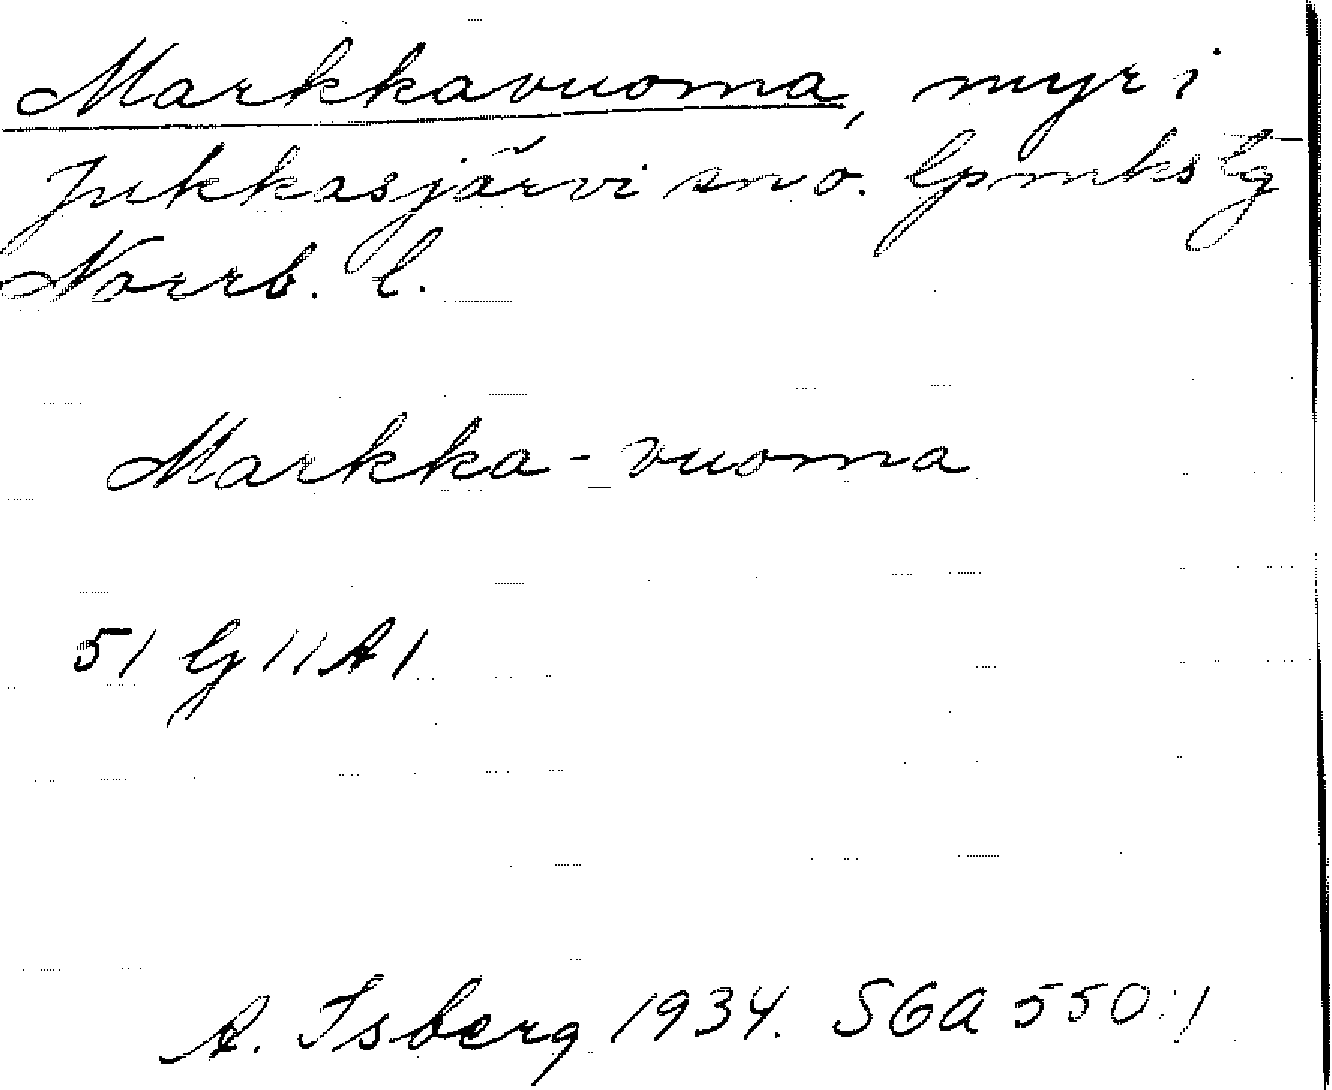 Markkavuoma, myr i
Jukkasjärvi sn o. lpmks tg
Norrb. l.
Markka-vuoma
51 G 11 A 1
A. Isberg 1934. SGA 550:1